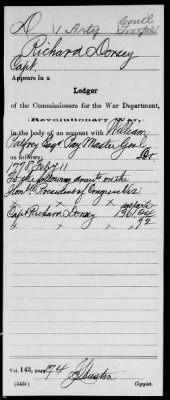 D | 1 Arty | Cont'l Troops
Richard Dorsey
Capt.
Appears in a
Ledger
of the Commissioners for the War Department,
(Revolutionary War,)
in the body of an account with William
Palfrey Esqr Pay Master Genl
as follows: Dr.
1778 Feby 11
To the following on the
Honble President of Congress Viz.
" " "
Capt Richard Dorsey
" 92
Vol. 143, page 174
Copyist.